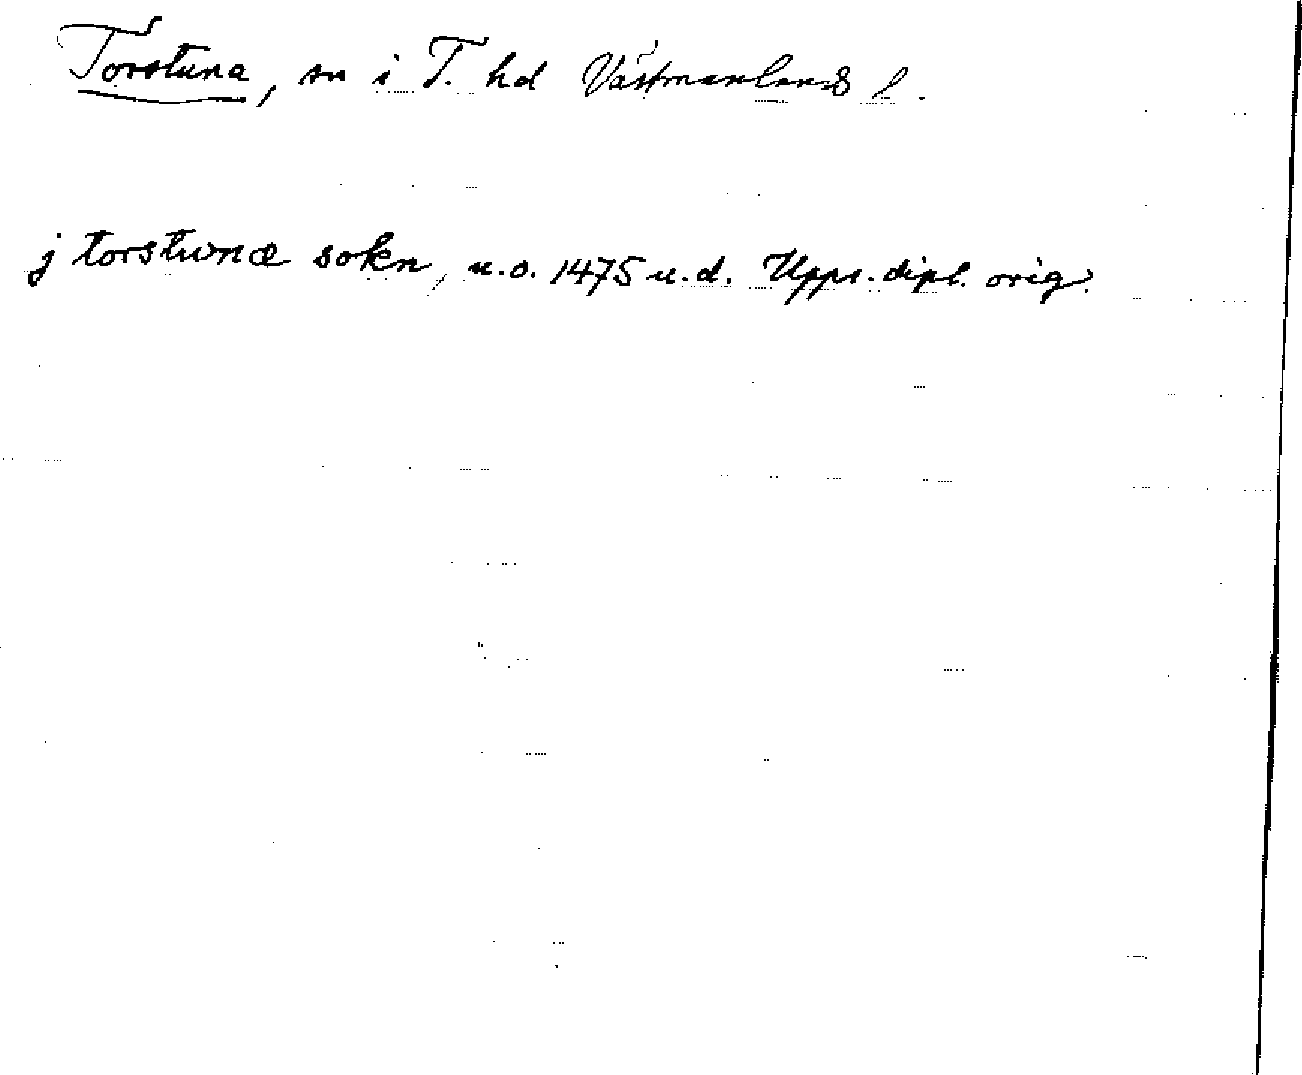 Torstuna, sn i T. hd Västmanlands l.
j torstwnæ sokn, u.o. 1475 u.d. Upps. dipl. orig.